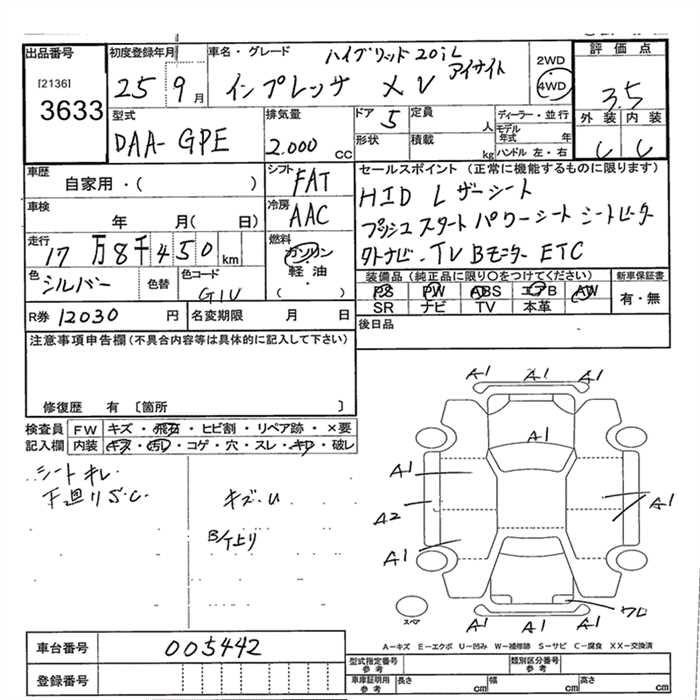 出品番号
[2136]
3633
初度登録年月
25 9月
車名・グレード
ハイブリッド2.0iL
インプレッサ XV アイサイト
2WD
4WD
評価点
3.5
外装 内装
C C
型式
DAA-GPE
排気量
2.000 cc
ドア 5
形状
定員 人
積載 kg
ディーラー・並行
モデル年式 年
ハンドル 左・右
車歴
自家用・( )
シフト FAT
冷房 AAC
車検
年 月( 日)
走行
17万8千450km
燃料
ガソリン
軽・油
( )
色 シルバー
色替
色コード G1U
セールスポイント (正常に機能するものに限ります)
HID レザーシート
プッシュスタート パワーシート シートヒーター
タトナビ・TV Bモニター ETC
装備品 (純正品に限り○をつけてください)
PS PW ABS エアB AW
SR ナビ TV 本革
新車保証書
有・無
後日品
R券 12030 円
名変期限 月 日
注意事項申告欄(不具合内容等は具体的に記入して下さい)
修復歴 有 〔箇所 〕
検査員記入欄
FW キズ・飛石・ヒビ割・リペア跡・×要
内装 キズ・汚れ・コゲ・穴・スレ・キレ・破レ
シートキレ
下廻りS.C.
キズ・U
B/ケ上り
A1 A1 A1
A1
A1
A2
A1
A1
ワレ
A1 A1 A1
スペア
A-キズ E-エクボ U-凹み W-補修跡 S-サビ C-腐食 XX-交換済
車台番号 005442
登録番号
型式指定番号 参考
類別区分番号 参考
車庫証明用 参考
長さ cm
幅 cm
高さ cm